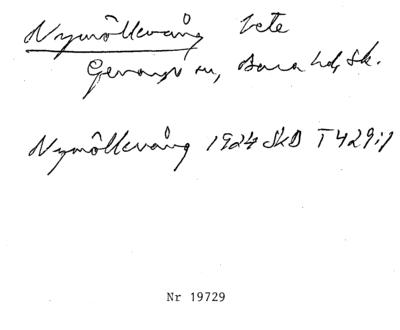 Nymöllevång vete
Genarps sn, Bara hd, Sk.
Nymöllevång 1924 SkD T429:1
Nr 19729